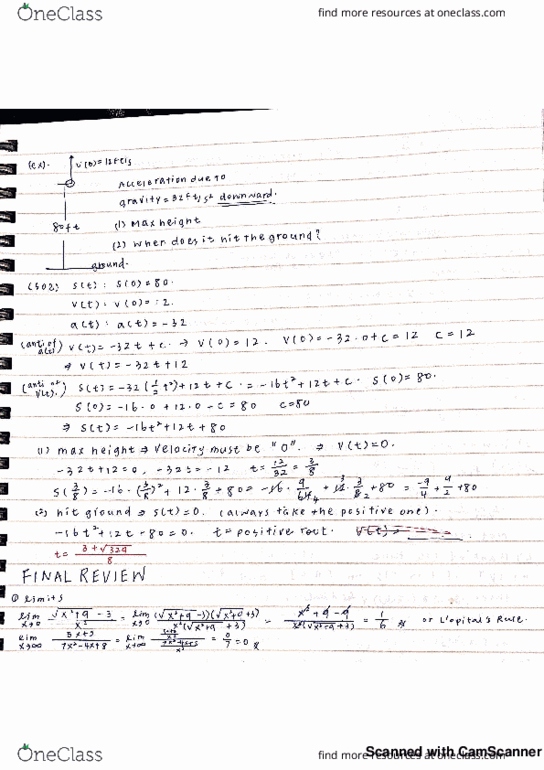 OneClass
find more resources at oneclass.com
(ex). v(0)=12ft/s
Acceleration due to
gravity=32ft/s² downward.
80ft
(1) Max height
(2) When does it hit the ground?
ground.
s(t): s(0)=80.
v(t): v(0)=12.
a(t): a(t)=-32
(anti of a(t)) v(t)=-32t+c. → v(0)=12. v(0)=-32·0+c=12 c=12
⇒ v(t)=-32t+12
(anti of v(t).) s(t)=-32(1/2 t²)+12t+c = -16t²+12t+c. s(0)=80.
s(0)=-16·0+12·0-c=80 c=80
⇒ s(t)=-16t²+12t+80
(1) max height ⇒ velocity must be "0". ⇒ v(t)=0.
-32t+12=0, -32t=-12 t=12/32=3/8
s(3/8)=-16·(3/8)²+12·3/8+80=-16·9/64+12·3/8+80=-9/4+9/2+80
(2) hit ground ⇒ s(t)=0. (always take the positive one).
-16t²+12t-80=0. t=positive root.
t=3+√329/8
FINAL REVIEW
① limits
lim x→0 √x²+9-3/x² = lim x→0 (√x²+9-3)(√x²+9+3)/x²(√x²+9+3) = x²+9-9/x²(√x²+9+3) = 1/6 or L'opital's Rule.
lim x→∞ 5x+3/7x²-4x+8 = lim x→∞ = 0/7=0
Scanned with CamScanner
OneClass
find more resources at oneclass.com